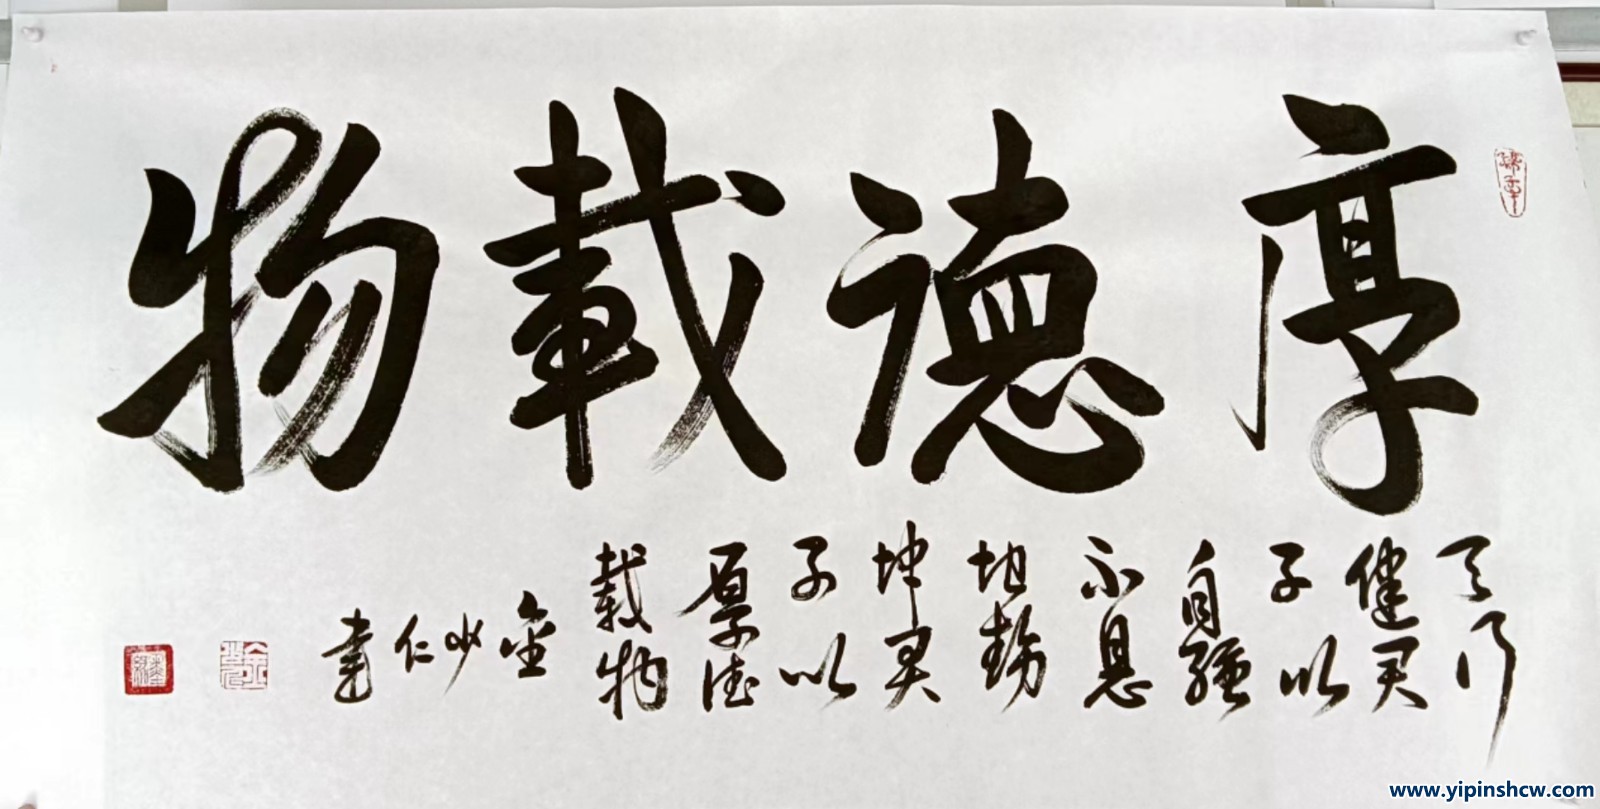 厚德载物
天行
健君
子以
自强
不息
地势
坤君
子以
厚德
载物
金少仁书
www.yipinshcw.com